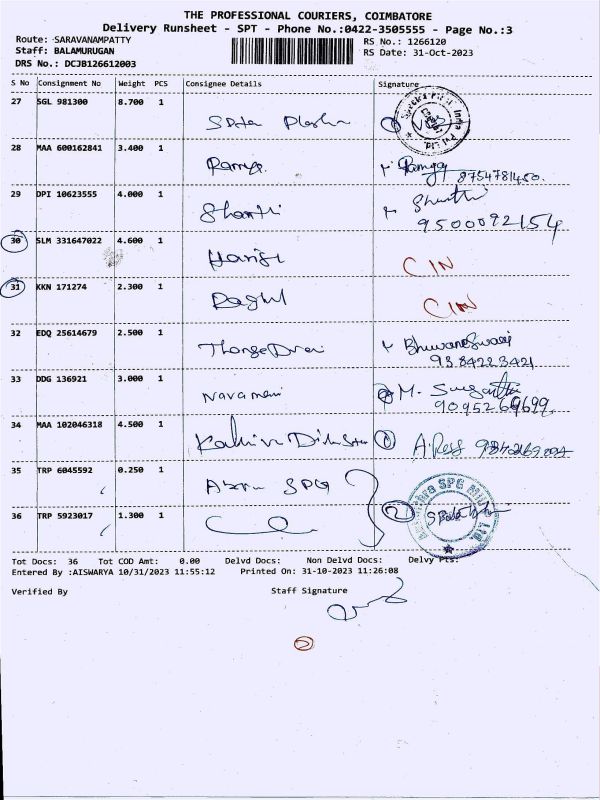 THE PROFESSIONAL COURIERS, COIMBATORE
Delivery Runsheet - SPT - Phone No.:0422-3505555 - Page No.:3
Route: SARAVANAMPATTY RS No.: 1266120
Staff: BALAMURUGAN RS Date: 31-Oct-2023
DRS No.: DCJB126612003
S No Consignment No Weight PCS Consignee Details Signature
27 SGL 981300 8.700 1
28 MAA 600162841 3.400 1 Ramya Ramya
8754781450.
29 DPI 10623555 4.000 1 Shanthi Shanthi
9500092154
30 SLM 331647022 4.600 1 CIN
31 KKN 171274 2.300 1 Ragul CIN
32 EDQ 25614679 2.500 1 Bhuwaneswari
33 DDG 136921 3.000 1 Navamani M.
34 MAA 102046318 4.500 1
35 TRP 6045592 0.250 1 SPG
36 TRP 5923017 1.300 1
Tot Docs: 36 Tot COD Amt: 0.00 Delvd Docs: Non Delvd Docs: Delvy Pts:
Entered By :AISWARYA 10/31/2023 11:55:12 Printed On: 31-10-2023 11:26:08
Verified By Staff Signature